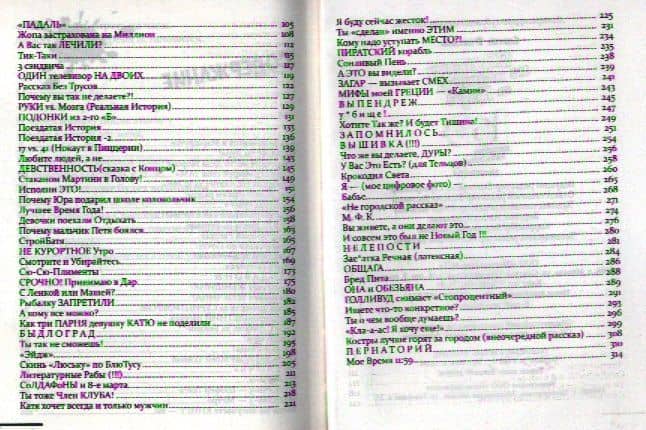 «ПАДАЛЬ» 105
Жопа застрахована на Миллион 108
А Вас так ЛЕЧИЛИ? 112
Тик-Таки 115
3 сэндвича 117
ОДИН телевизор НА ДВОИХ 119
Рассказ Без Трусов 122
Почему вы так не делаете?! 127
РУКИ vs. Мозга (Реальная История) 129
ПОДОНКИ из 2-го «Б» 131
Поездатая История 133
Поездатая История -2 136
17 vs. 41 (Нокаут в Пиццерии) 139
Любите людей, а не... 143
ДЕВСТВЕННОСТЬ(сказка с Концом) 145
Стаканом Мартини в Голову! 149
Исполни ЭТО! 151
Почему Юра подарил школе колокольчик 154
Лучшее Время Года! 156
Девочки поехали Отдыхать 158
Почему мальчик Петя боялся 163
СтройБатя 165
НЕ КУРОРТНОЕ Утро 167
Смотрите и Убирайтесь 169
Сю-Сю-Плименты 173
СРОЧНО! Принимаю в Дар 175
С Ленкой или Машей? 180
Рыбалку ЗАПРЕТИЛИ 182
А кому все можно? 185
Как три ПАРНЯ девушку КАТЮ не поделили 187
БЫДЛОГРАД 192
Ты так не сможешь! 195
«Эйдж» 198
Скинь «Люську» по БлюТусу 205
Литературные Рабы (!!!) 211
СоЛДАФоНЫ и 8-е марта 213
Ты тоже Член КЛУБА! 218
Катя хочет всегда и только мужчин 221
Я буду сейчас жесток! 225
Ты «сделал» именно ЭТИМ 231
Кому надо уступать МЕСТО?! 234
ПИРАТСКИЙ корабль 235
Сонливый Пень 238
А ЭТО вы видели? 239
ЗАГАР — вызывает СМЕХ 241
МИФЫ моей ГРЕЦИИ — «Камин» 243
ВЫПЕНДРЕЖ 245
у*бище! 247
Хотите Так же? И будет Тишина! 249
ЗАПОМНИЛОСЬ 251
ВЫШИВКА (!!!) 254
Что же вы делаете, ДУРЫ? 256
У Вас Это Есть? (для Тельцов) 258
Крокодил Света 260
Я — (мое цифровое фото) — 265
Бабье 268
«Не городской рассказ» 271
М. Ф. К. 274
Вы живете, а они делают это... 276
И совсем это был не Новый Год !!! 280
НЕЛЕПОСТИ 281
Зае*атка Речная (латексная) 284
ОБЩАГА 286
Бред Пита 288
ОНА и ОБЕЗЬЯНА 289
ГОЛЛИВУД снимает «Стопроцентный» 291
Ищете что-то конкретное? 293
Ты о чем вообще думаешь? 296
«Кла-а-ас! Я хочу еще!» 299
Костры лучше горят за городом (внеочередной рассказ) 308
ПЕРНАТОРИЙ 310
Мое Время 11:59 314